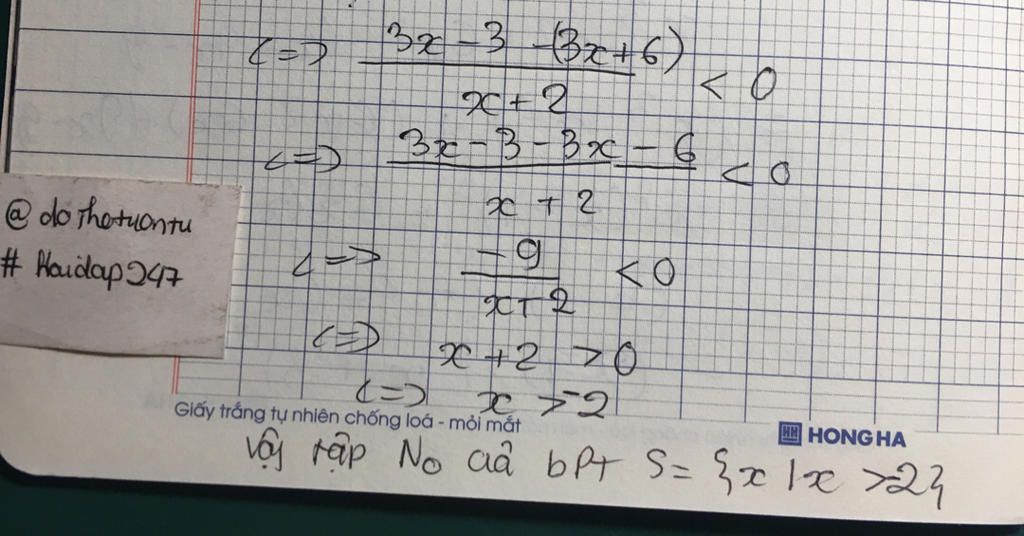 <=> 3x - 3 - (3x + 6) / x + 2 < 0
<=> 3x - 3 - 3x - 6 / x + 2 < 0
@ dothatuantu
# Hoidap247
<=> -9 / x + 2 < 0
<=> x + 2 > 0
<=> x > -2
Giấy trắng tự nhiên chống loá - mỏi mắt
HH HONG HA
Vậy tập No của bPt S = {x | x > -2}